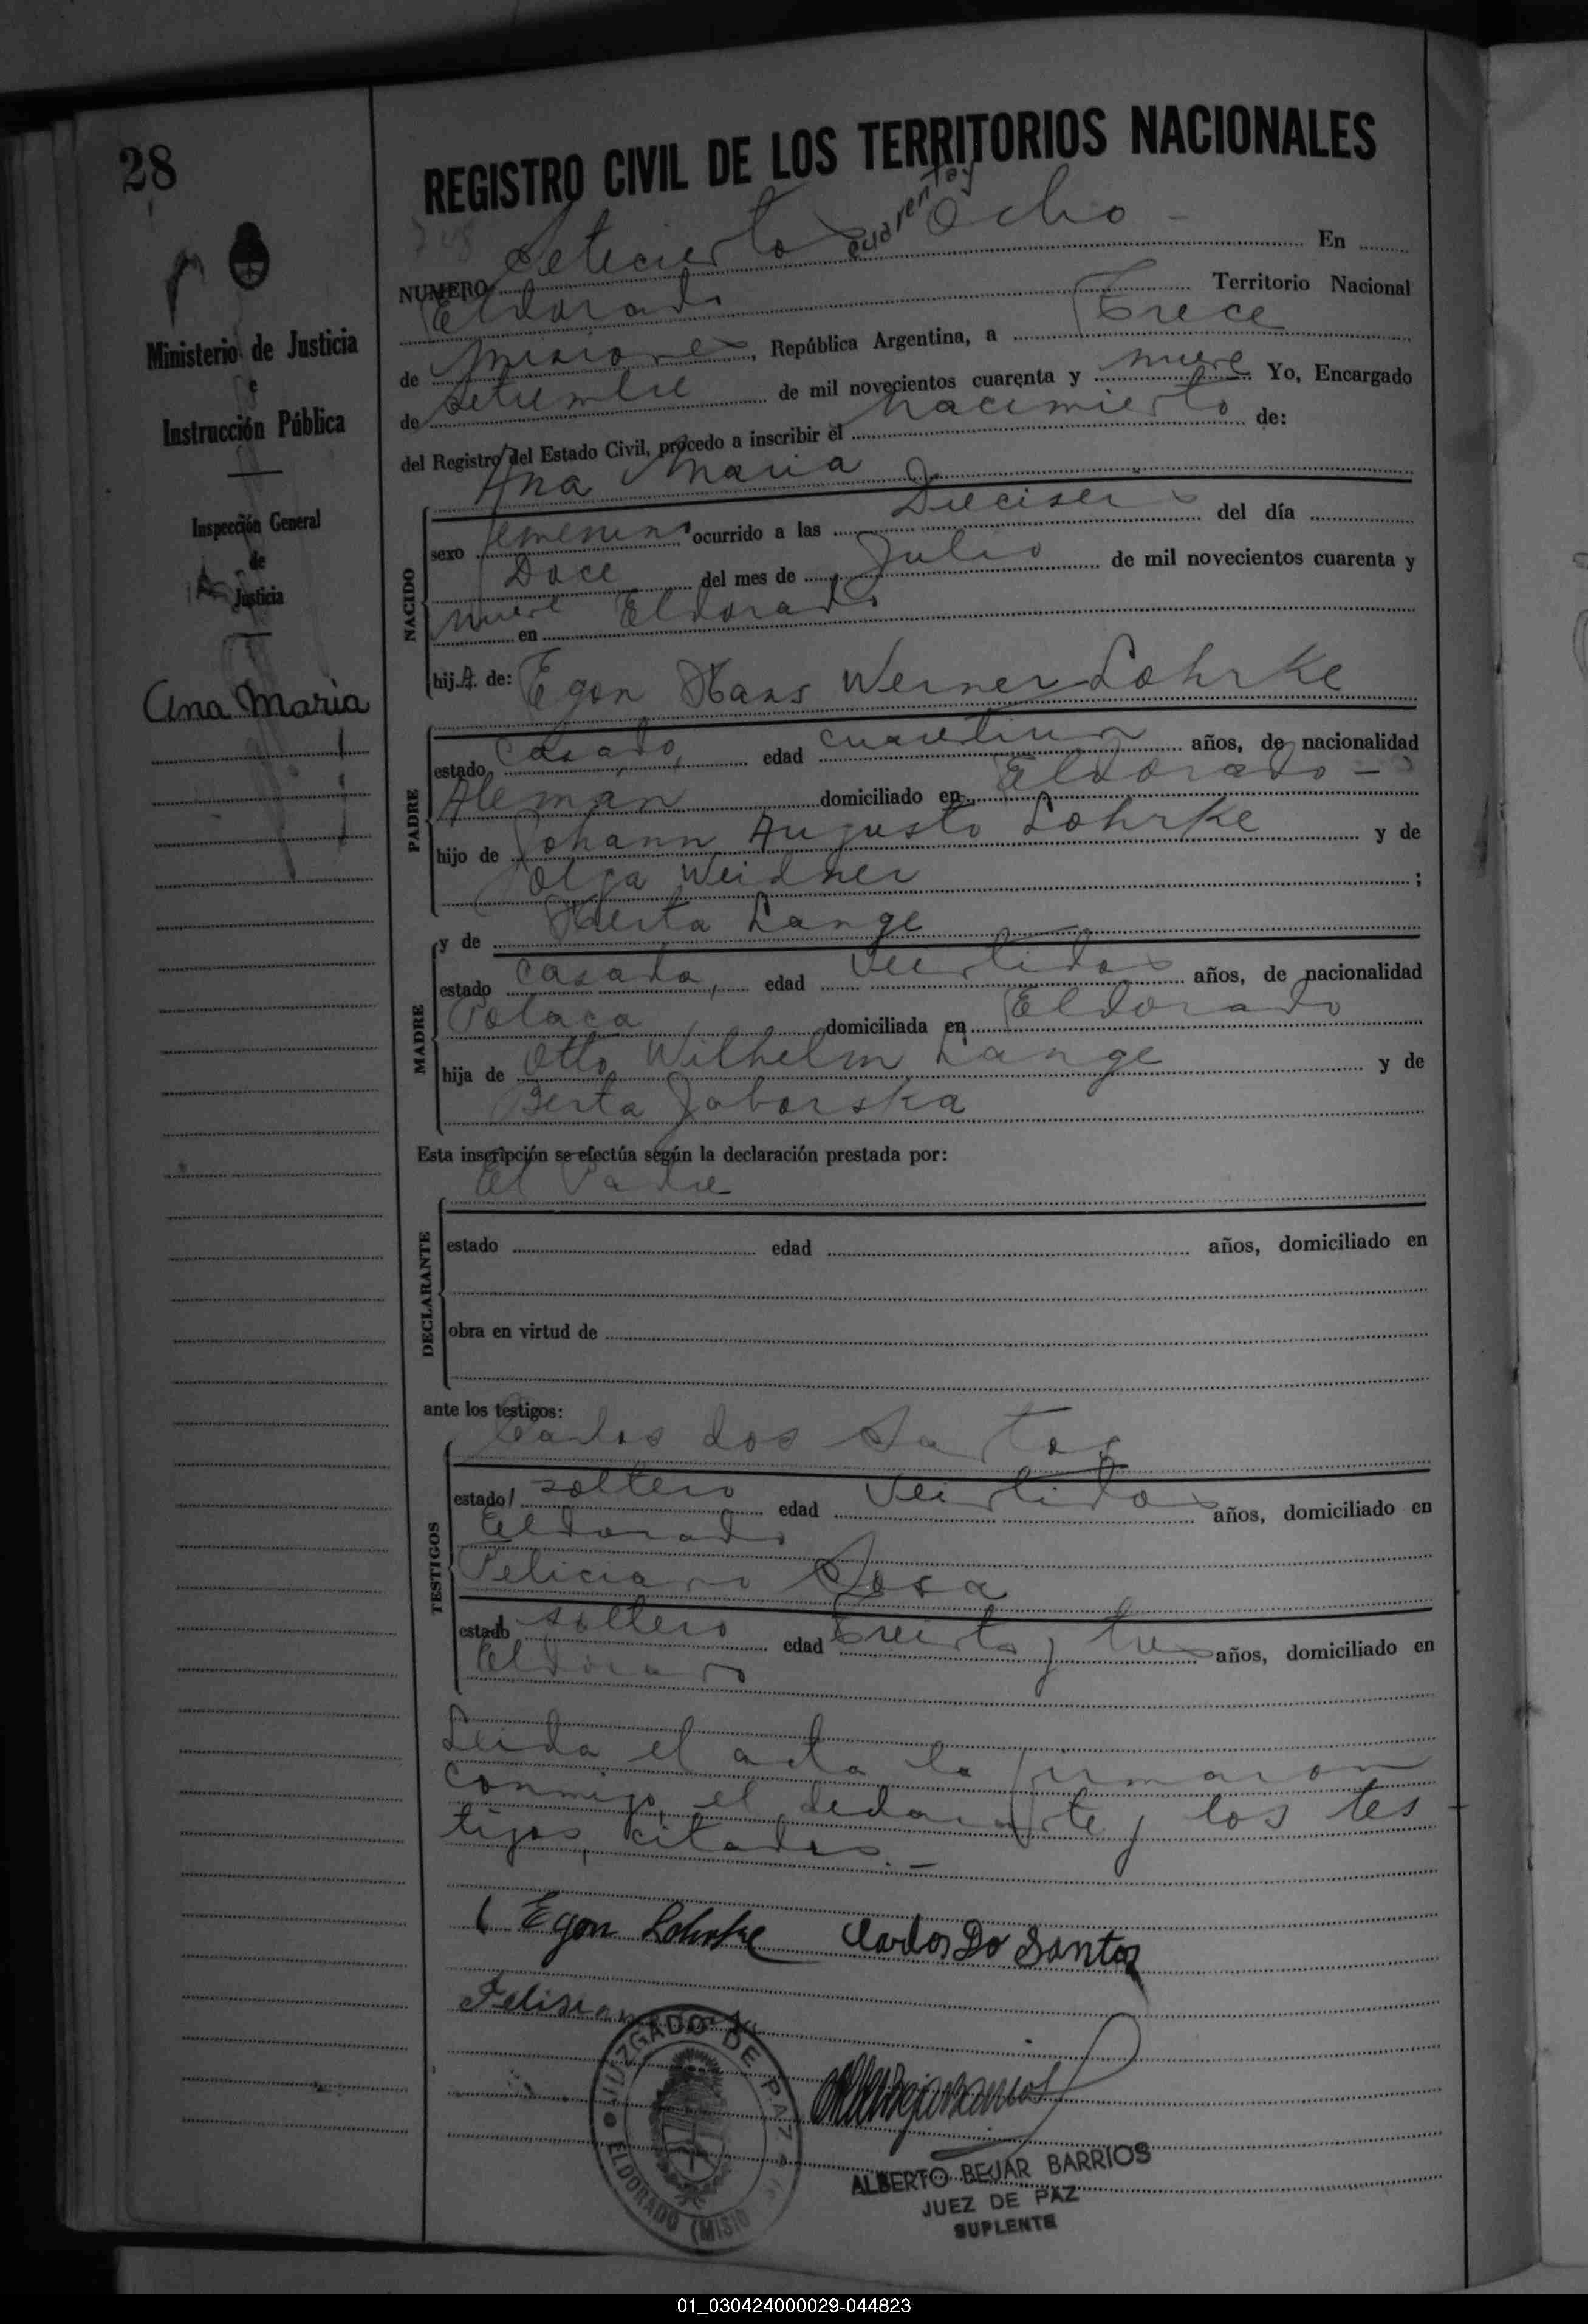 28
REGISTRO CIVIL DE LOS TERRITORIOS NACIONALES
748
NUMERO Setecientos cuarenta y Ocho - En
Eldorado Territorio Nacional
de Misiones, República Argentina, a Trece
de Setiembre de mil novecientos cuarenta y nueve Yo, Encargado
del Registro del Estado Civil, procedo a inscribir el nacimiento de:
Ana Maria
Ministerio de Justicia
e
Instrucción Pública
Inspección General
de
Justicia
Ana Maria
NACIDO
sexo femenino ocurrido a las Dieciseis del día
Doce del mes de Julio de mil novecientos cuarenta y
nueve en Eldorado
hij.A. de: Egon Hans Werner Lohrke
PADRE
estado Casado, edad cuarentiun años, de nacionalidad
Aleman domiciliado en Eldorado -
hijo de Johann Augusto Lohrke y de
Olga Weidner ;
MADRE
y de Herta Lange
estado casada, edad Veintidos años, de nacionalidad
Polaca domiciliada en Eldorado
hija de Otto Wilhelm Lange y de
Berta Jaborska
Esta inscripción se efectúa según la declaración prestada por:
El Padre
DECLARANTE
estado edad años, domiciliado en
obra en virtud de
ante los testigos:
Carlos dos Santos
TESTIGOS
estado soltero edad Veintidos años, domiciliado en
Eldorado
Feliciano Sosa
estado soltero edad treinta y tres años, domiciliado en
Eldorado
Leida el acta la firmaron
conmigo, el declarante y los tes
tigos, citados.-
Egon Lohrke Carlos Do Santos
JUZGADO DE PAZ
ELDORADO (MISIO
ALBERTO BEJAR BARRIOS
JUEZ DE PAZ
SUPLENTE
01_030424000029-044823